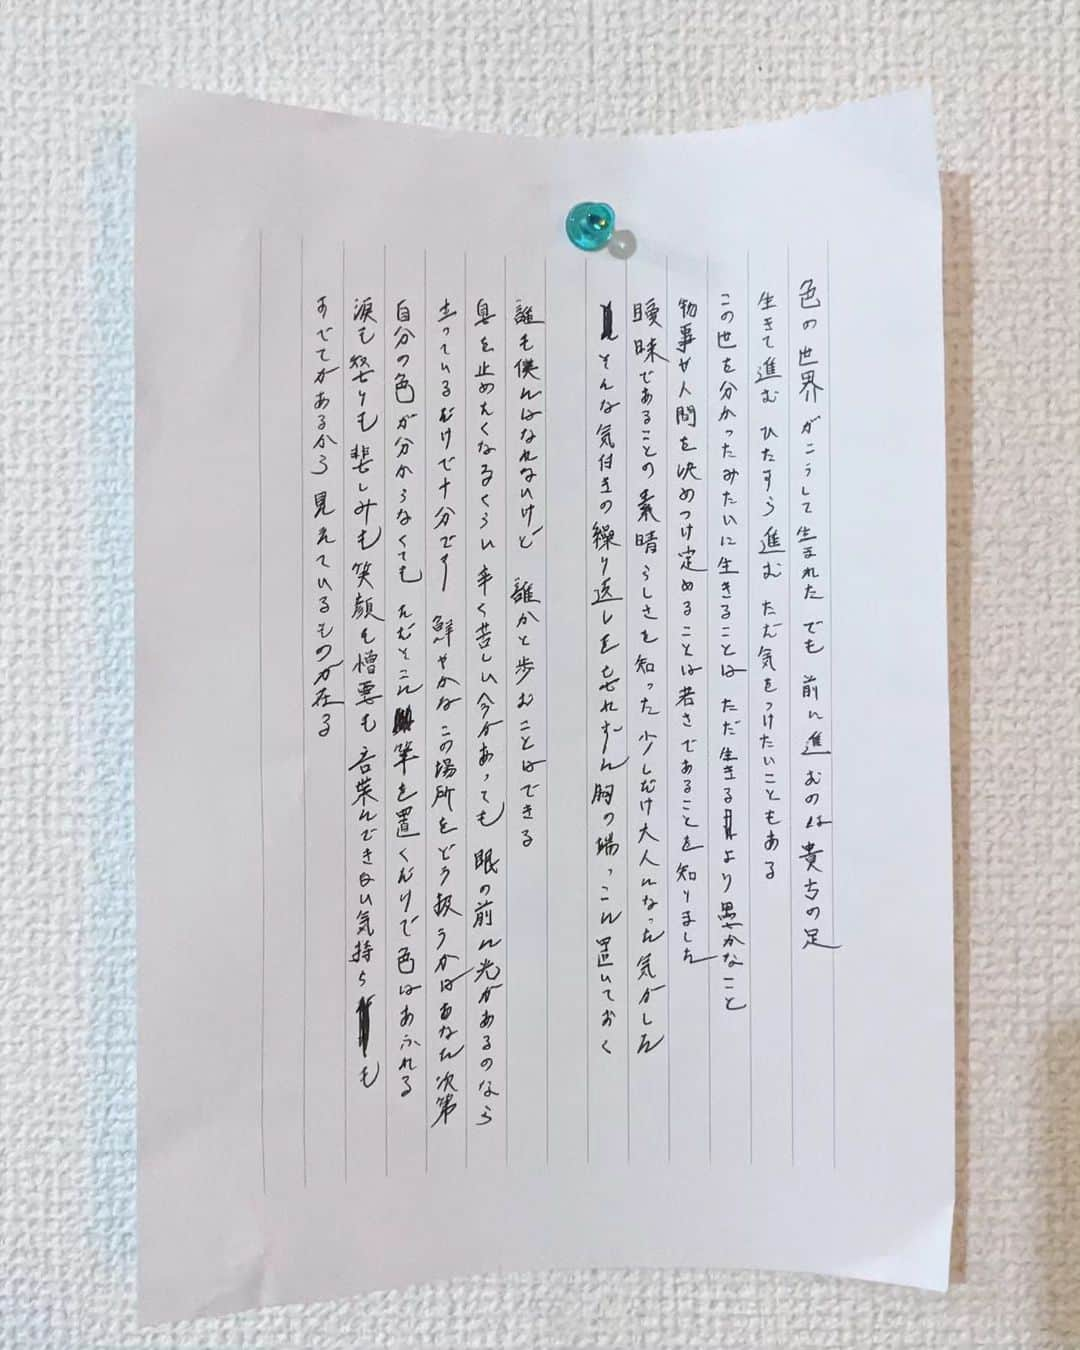 色の世界がこうして生まれた でも 前に進むのは貴方の足
生きて進む ひたすら進む ただ気をつけたいこともある
この世を分かったみたいに生きることは ただ生きるより愚かなこと
物事や人間を決めつけ定めることは若さであることを知りました
曖昧であることの素晴らしさを知った 少しだけ大人になった気がした
そんな気付きの繰り返しを忘れずに胸の端っこに置いておく
誰も僕にはなれないけど 誰かと歩むことはできる
息を止めたくなるくらい 辛く苦しい今があっても 眼の前に光があるのなら
立っているだけで十分です 鮮やかなこの場所をどう扱うかはあなた次第
自分の色が分からなくても ただそこに筆を置くだけで色はあふれる
涙も怒りも悲しみも笑顔も憎悪も言葉にできない気持ちも
すべてがあるから 見えているものが在る